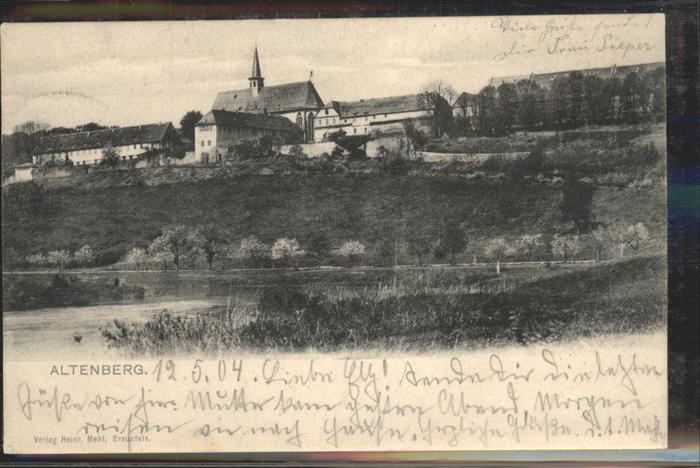 Viele Grüße sendet
dir Frau Pieper
ALTENBERG. 12.5.04. Liebe Elly! Sende Dir die letzten
Grüße von hier. Mutter kam gestern Abend Morgen
reisen wir nach Hause. Herzliche Grüße d. t. Max
Verlag Heinr. Mehl, Braunfels.